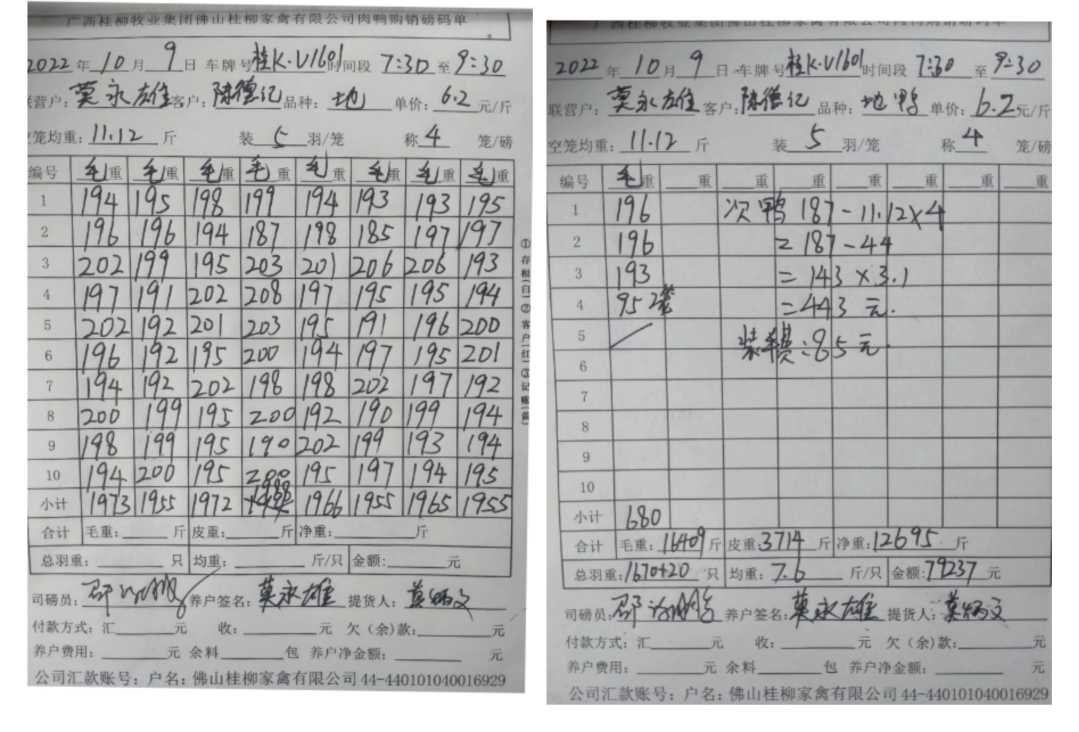 广西桂柳牧业集团佛山桂柳家禽有限公司肉鸭购销磅码单
2022年10月9日 车牌号桂K·V1601时间段 7:30 至 9:30
联营户:莫永雄 客户:陈德记 品种:地 单价:6.2元/斤
空笼均重:11.12 斤 装5羽/笼 称4笼/磅
编号 毛重 毛重 毛重 毛重 毛重 毛重 毛重 毛重
1 194 195 198 199 194 193 193 195
2 196 196 194 187 198 185 197 197
3 202 199 195 203 201 206 206 193
4 197 191 202 208 197 195 195 194
5 202 192 201 203 195 191 196 200
6 196 192 195 200 194 197 195 201
7 194 192 202 198 198 202 197 192
8 200 199 195 200 192 190 199 194
9 198 199 195 190 202 199 193 194
10 194 200 195 200 195 197 194 195
小计 1973 1955 1972 1988 1966 1955 1965 1955
合计 毛重: 斤 皮重: 斤 净重: 斤
总羽重: 只 均重: 斤/只 金额: 元
司磅员: 养户签名:莫永雄 提货人:莫炳文
付款方式:汇 元 收: 元 欠(余)款: 元
养户费用: 元 余料 包 养户净金额: 元
公司汇款账号:户名:佛山桂柳家禽有限公司44-440101040016929
①存根(白)②客户(红)③记账(黄)
2022年10月9日 车牌号桂K·V1601时间段 7:30 至 9:30
联营户:莫永雄 客户:陈德记 品种:地鸭 单价:6.2元/斤
空笼均重:11.12 斤 装5羽/笼 称4笼/磅
编号 毛重 重 重 重 重 重 重 重
1 196 次鸭 187-11.12×4
2 196 =187-44
3 193 =143×3.1
4 95 2笼 =443元.
5 装车费:85元.
6
7
8
9
10
小计 680
合计 毛重:16409斤 皮重:3714斤 净重:12695斤
总羽重:1670+20只 均重:7.6斤/只 金额:79237元
司磅员: 养户签名:莫永雄 提货人:莫炳文
付款方式:汇 元 收: 元 欠(余)款: 元
养户费用: 元 余料 包 养户净金额: 元
公司汇款账号:户名:佛山桂柳家禽有限公司44-440101040016929